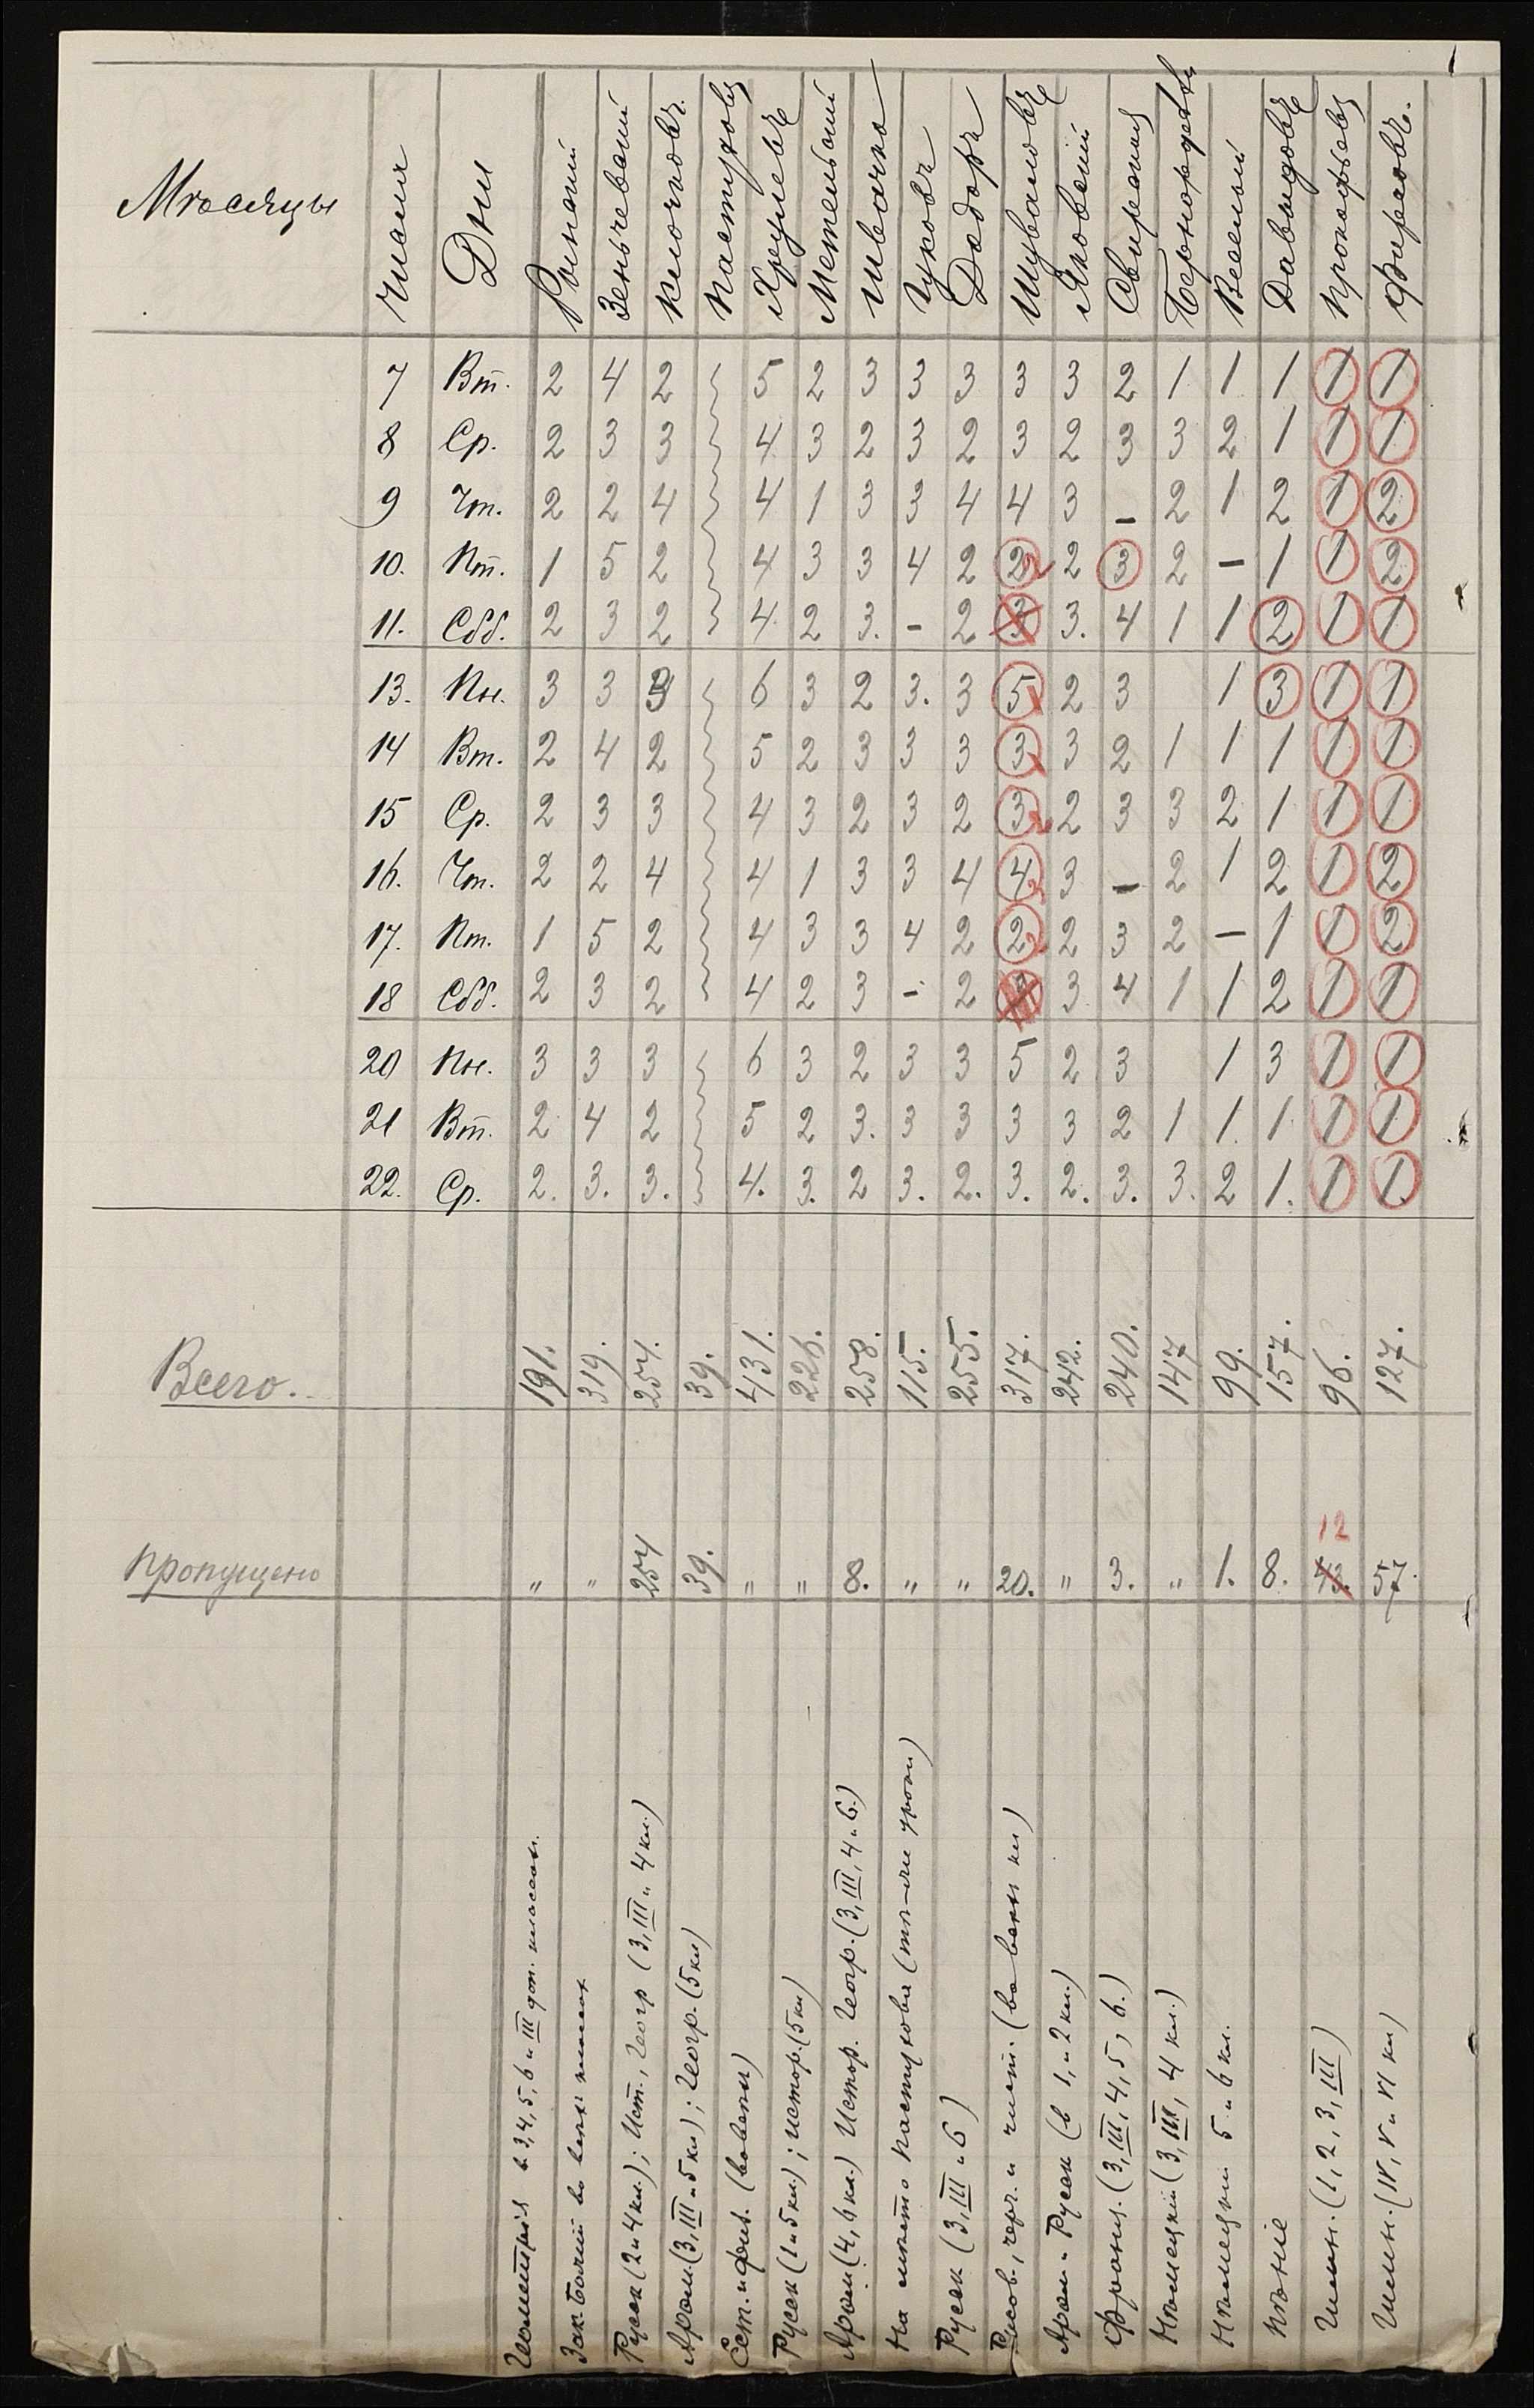 Мѣсяцы Числа Дни Рынскій Зеньчевскій Клочковъ Пастуховъ Хрущевъ Метельскій Шваччо Чуковъ Дадоръ Шуваловъ Яновскій Свирскій Веселый Давыдовъ Прокофьевъ Фирсовъ.
7 Вт. 2 4 2 5 2 3 3 3 3 3 2 1 1 1 1 1
8 Ср. 2 3 3 4 3 2 3 2 3 2 3 3 2 1 1 1
9 Чт. 2 2 4 4 1 3 3 4 4 3 – 2 1 2 1 2
10. Пт. 1 5 2 4 3 3 4 2 2 2 3 2 – 1 1 2
11. Сбб. 2 3 2 4 2 3. – 2 3 3. 4 1 1 2 1 1
13. Пн. 3 3 3 6 3 2 3. 3 5 2 3 1 3 1 1
14 Вт. 2 4 2 5 2 3 3 3 3 3 2 1 1 1 1 1
15 Ср. 2 3 3 4 3 2 3 2 3 2 3 3 2 1 1 1
16. Чт. 2 2 4 4 1 3 3 4 4 3 – 2 1 2 1 2
17. Пт. 1 5 2 4 3 3 4 2 2 2 3 2 – 1 1 2
18 Сбб. 2 3 2 4 2 3 – 2 3 4 1 1 2 1 1
20 Пн. 3 3 3 6 3 2 3 3 5 2 3 1 3 1 1
21 Вт. 2 4 2 5 2 3. 3 3 3 3 2 1 1. 1. 1 1
22. Ср. 2. 3. 3. 4. 3. 2 3. 2. 3. 2. 3. 3. 2 1. 1 1.
Всего. 191. 319. 254. 39. 431. 226. 258. 115. 255. 317. 242. 240. 147 99. 157. 96. 127.
12
Пропущено " " 254 39. " " 8. " " 20. " 3. " 1. 8. 43. 57.
Геометрія в 3, 4, 5, 6 и III доп. классах.
Зак. Божій во всѣхъ классах
Русск (2 и 4 кл.); Ист., Геогр (3, III и 4 кл.)
Арѳм. (3, III и 5 кл); Геогр. (5 кл)
Ест. и физ. (во всѣхъ)
Русск (1 и 5 кл.); истор. (5 кл)
Арѳм (4, 6 кл.) Истор. Геогр. (3, III, 4 и 6.)
На мѣсто Пастухова (тѣ-же уроки)
Русск (3, III и 6)
Рисов., черч. и чист. (во всѣхъ кл)
Арѳм. и Русск (в 1, и 2 кл.)
Франц. (3, III, 4, 5, 6.)
Нѣмецкій (3, III, 4 кл.)
Нѣмецкій 5 и 6 кл.
Пѣніе
Гимн. (1, 2, 3, III)
Гимн. (IV, V и VI кл)